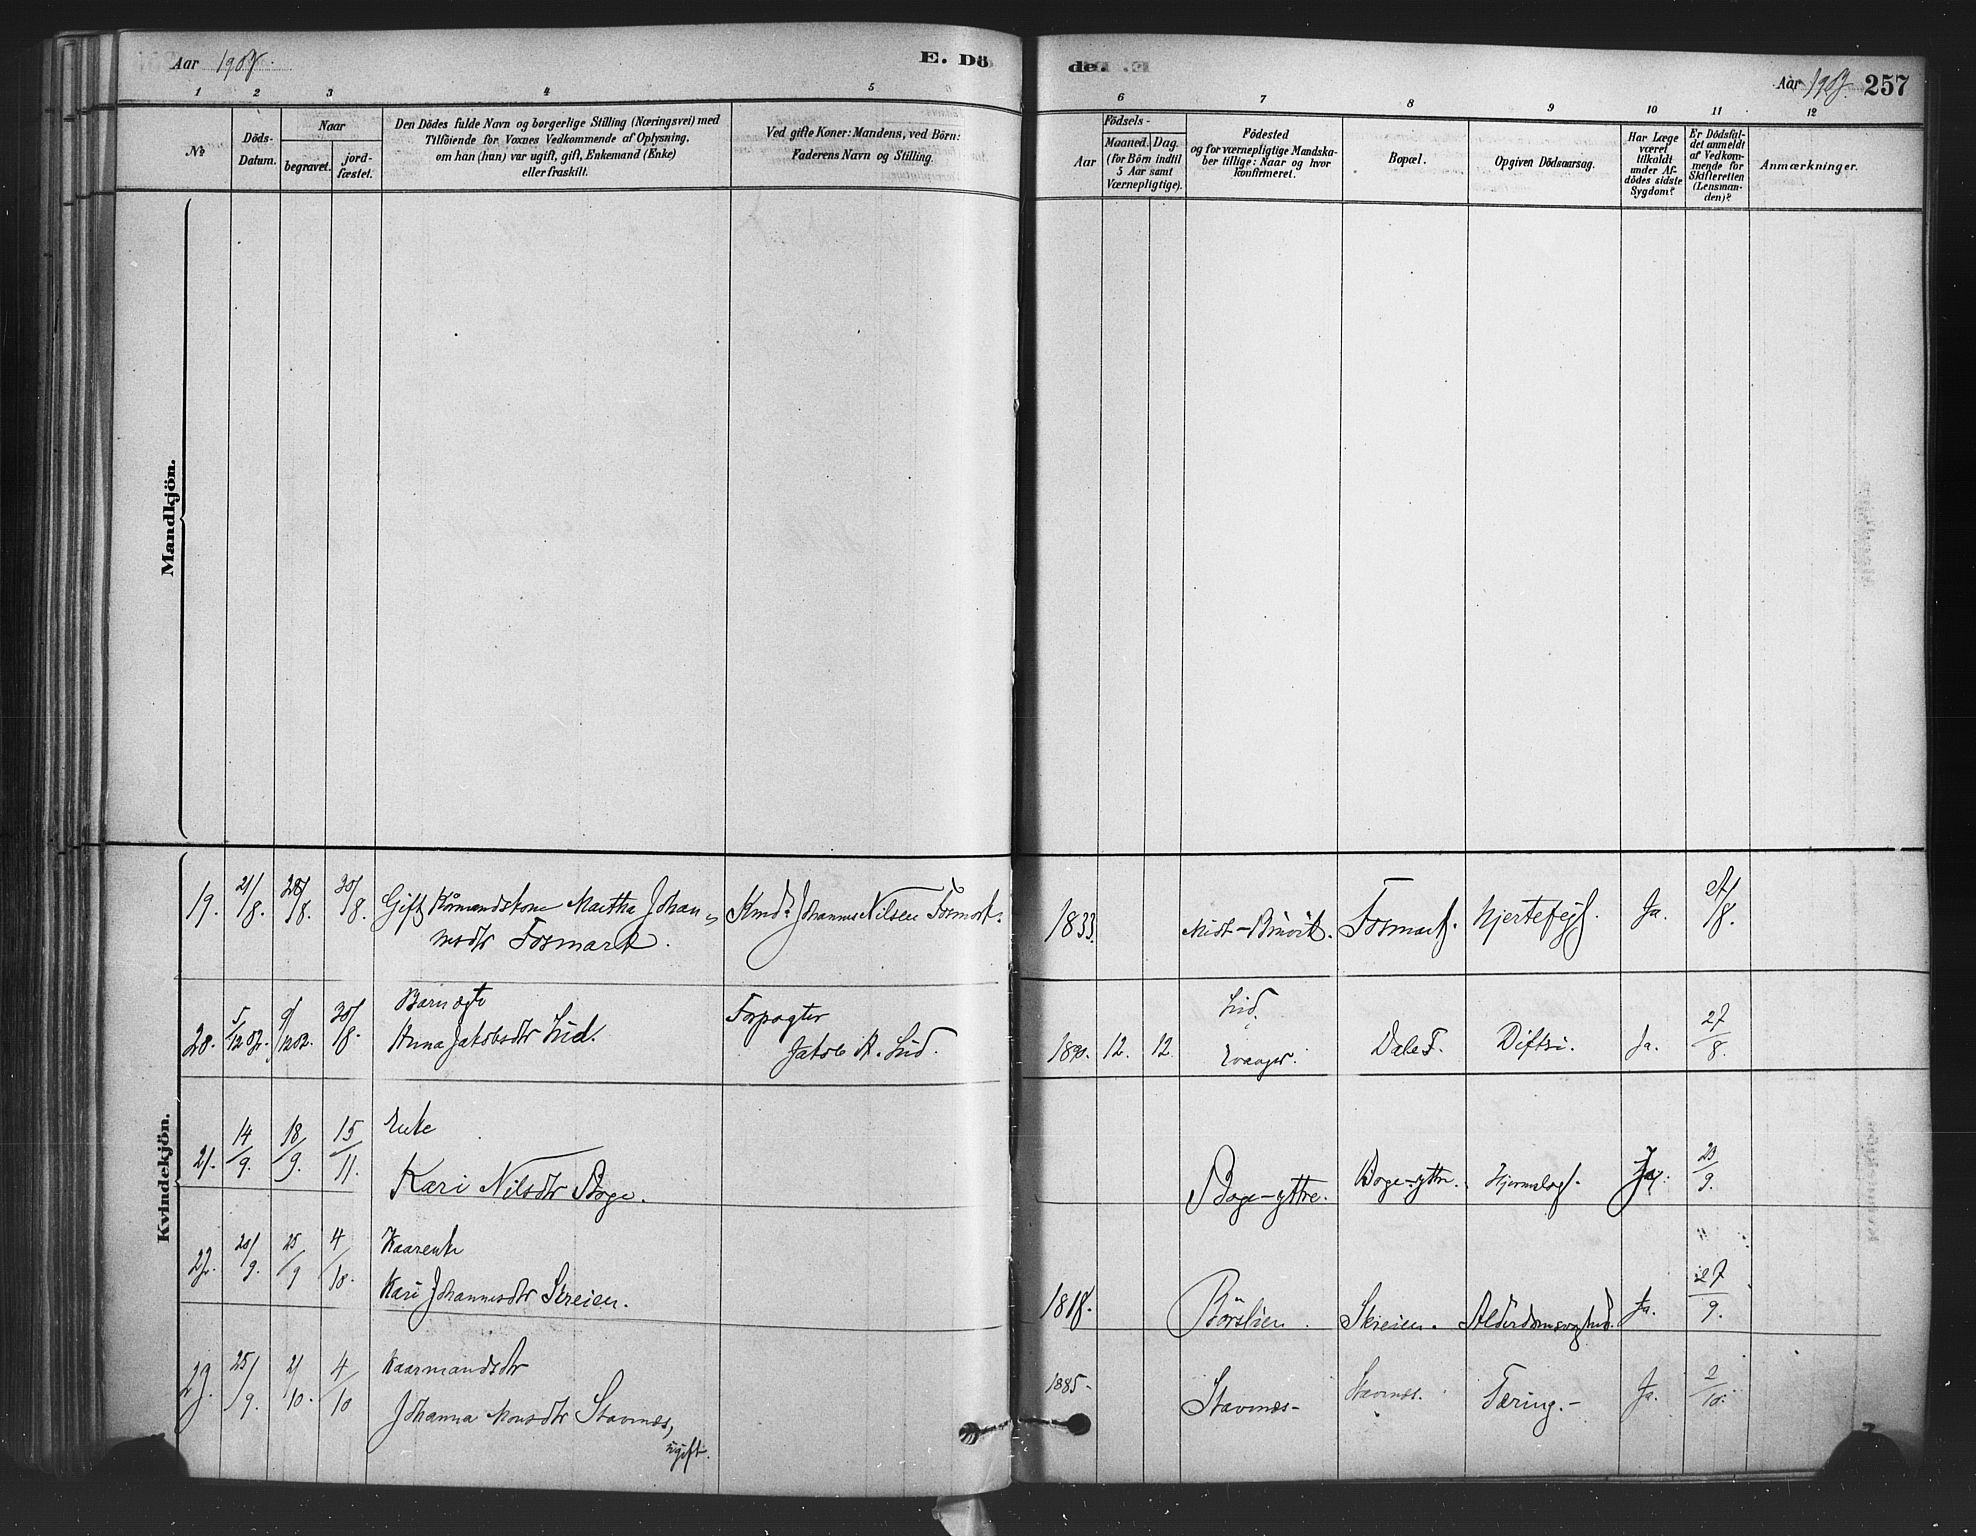 Aar 1903.
E. Dö
de.
Aar 1903. 257
1 2 3 4 5 6 7 8 9 10 11 12
No
Döds-
Datum.
Naar
begravet.
jord-
fæstet.
Den Dödes fulde Navn og borgerlige Stilling (Næringsvei) med
Tilföiende for Voxnes Vedkommende af Oplysning,
om han (hun) var ugift, gift, Enkemand (Enke)
eller fraskilt.
Ved gifte Koner: Mandens, ved Börn:
Faderens Navn og Stilling.
Födsels-
Aar
Maaned. Dag.
(for Börn indtil
5 Aar samt
Værnepligtige).
Födested
og for værnepligtige Mandska-
ber tillige: Naar og hvor
konfirmeret.
Bopæl.
Opgiven Dödsaarsag.
Har Læge
været
tilkaldt
under Af-
dödes sidste
Sygdom?
Er Dödsfal-
det anmeldt
af Vedkom-
mende for
Skifteretten
(Lensman-
den)?
Anmærkninger.
Mandkjön.
Kvindekjön.
19. 21/8. 28/8. 30/8. Gift Kårmandskone Martha Johan-
nesdtr Fosmark.
Kmd. Johannes Nilsen Fosmark.
1833. Fosmark. Hjertefejl. Ja.
20. 5/12 02. 9/12 02. 30/8. Barn ægte
Anna Jakobsdtr Lid.
Forpagter
Jakob A. Lid.
1890. 12. 12. Lid,
Evanger. Dale F. Diftri. Ja. 27/8.
21. 14/9. 18/9. 15/11. Enke
Kari Nilsdtr Boge.
Boge-yttre. Boge-yttre. Ja. 23/9.
22. 20/9. 25/9 4/10. Kaarenke
Kari Johannesdtr Skreien.
1818. Börslien. Skreien. Alderdomssvaghed. Ja. 27/9.
23. 25/9. 2/10. 4/10 Kaarmandsdtr
Johanna Monsdtr Stavnæs,
ugift.
1885. Stavnæs- Stavnæs. Tæring.- Ja. 2/10.